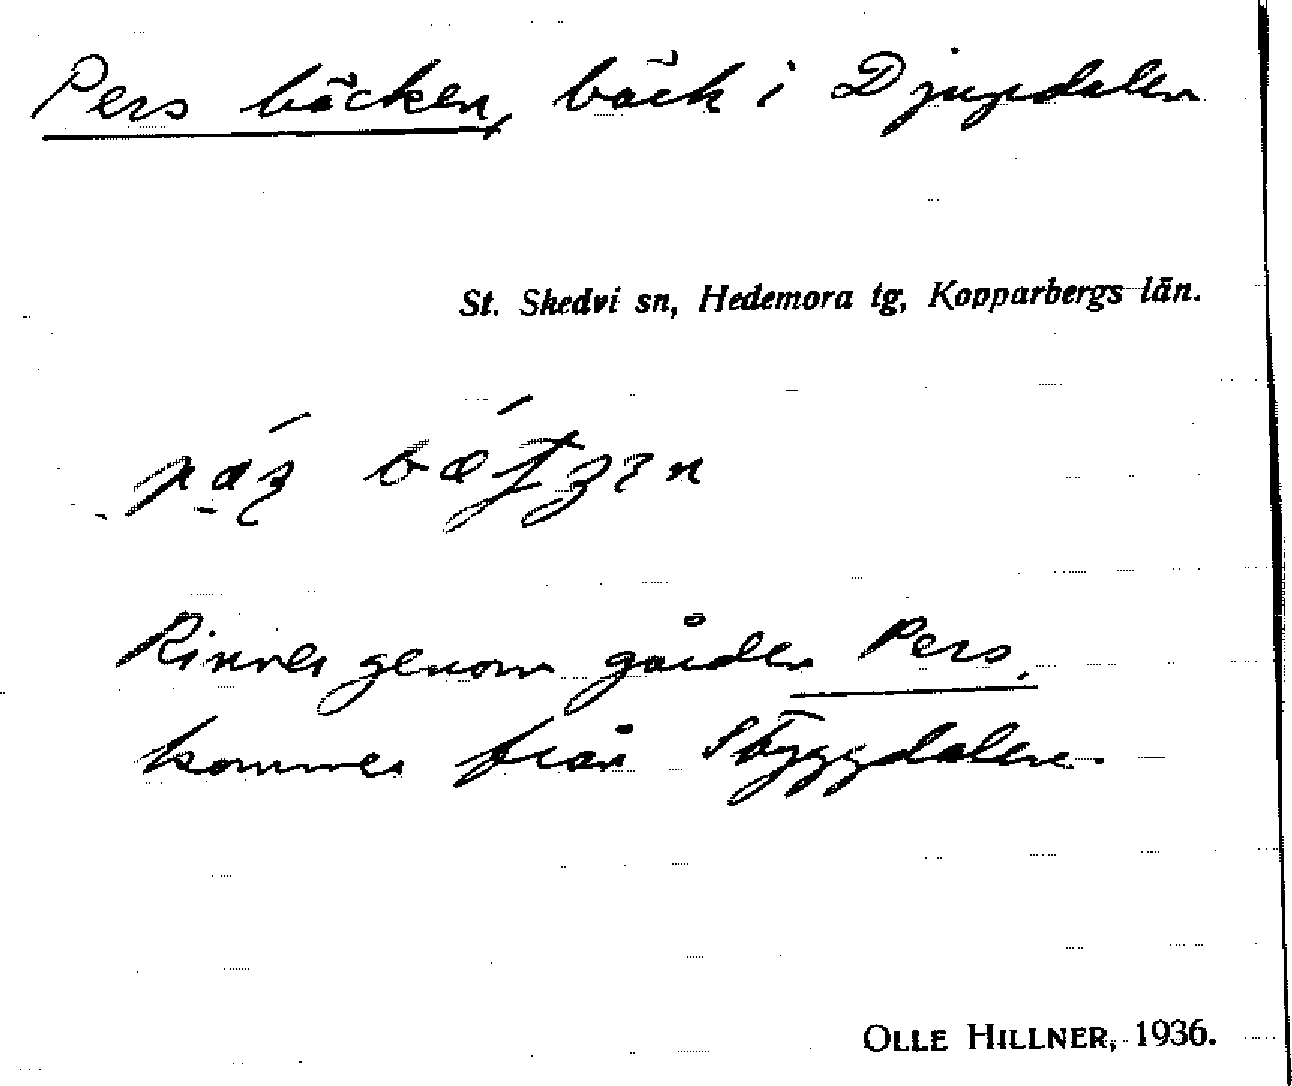 Pers bäcken, bäck i Djupdalen
St. Skedvi sn, Hedemora tg, Kopparbergs län.
Rinner genom gården Pers,
kommer från Styggdalen.
OLLE HILLNER, 1936.